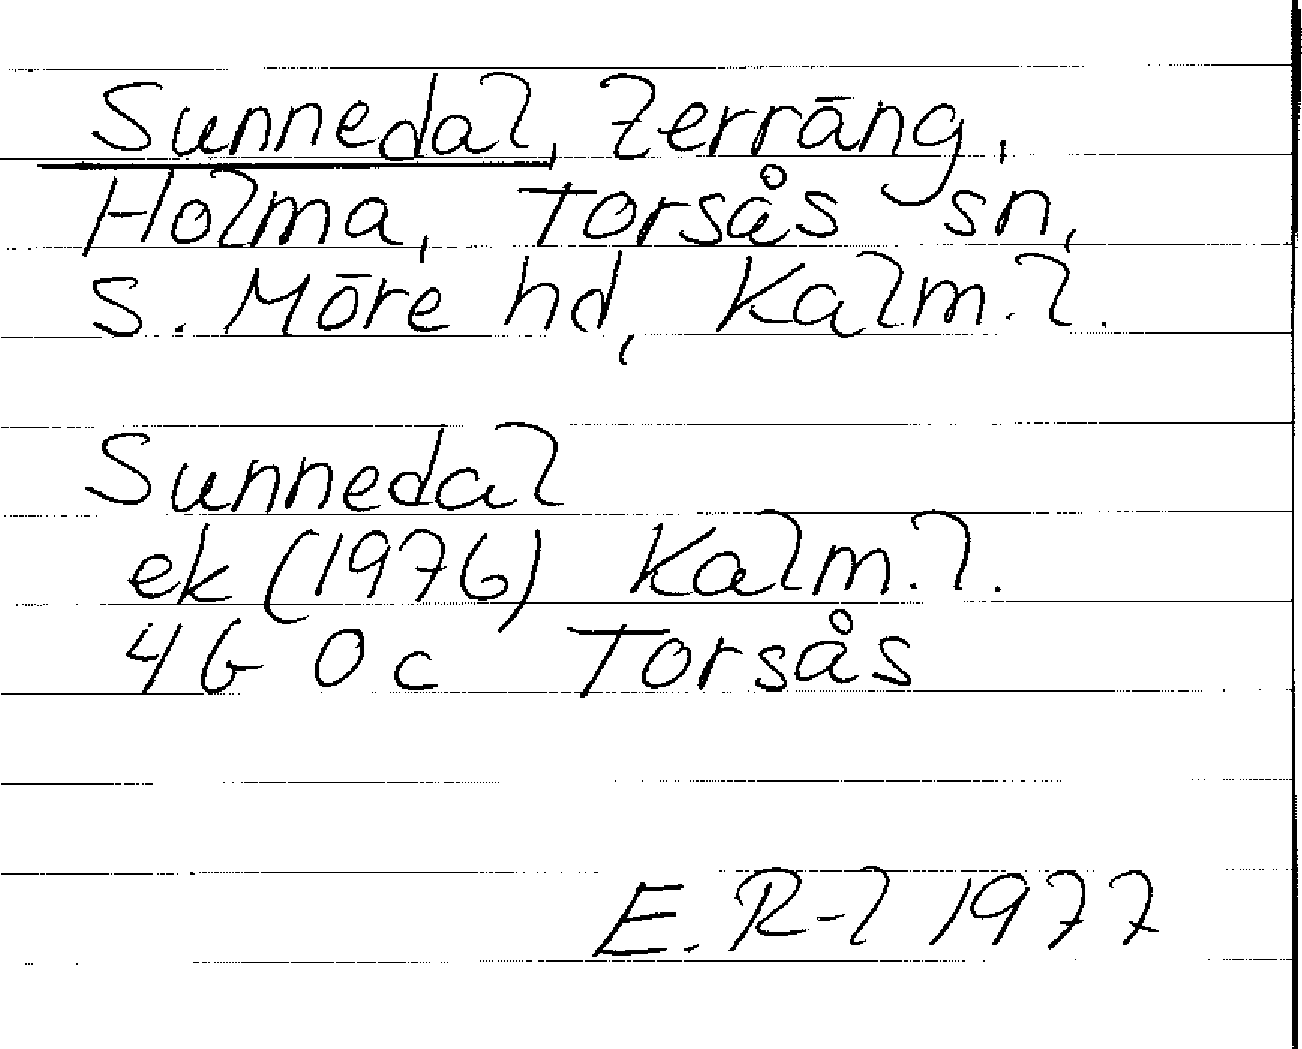 Sunnedal, terräng,
Holma, Torsås sn,
S. Möre hd, Kalm. l.
Sunnedal
ek (1976) Kalm. l.
4G 0c Torsås
E. R-l 1977